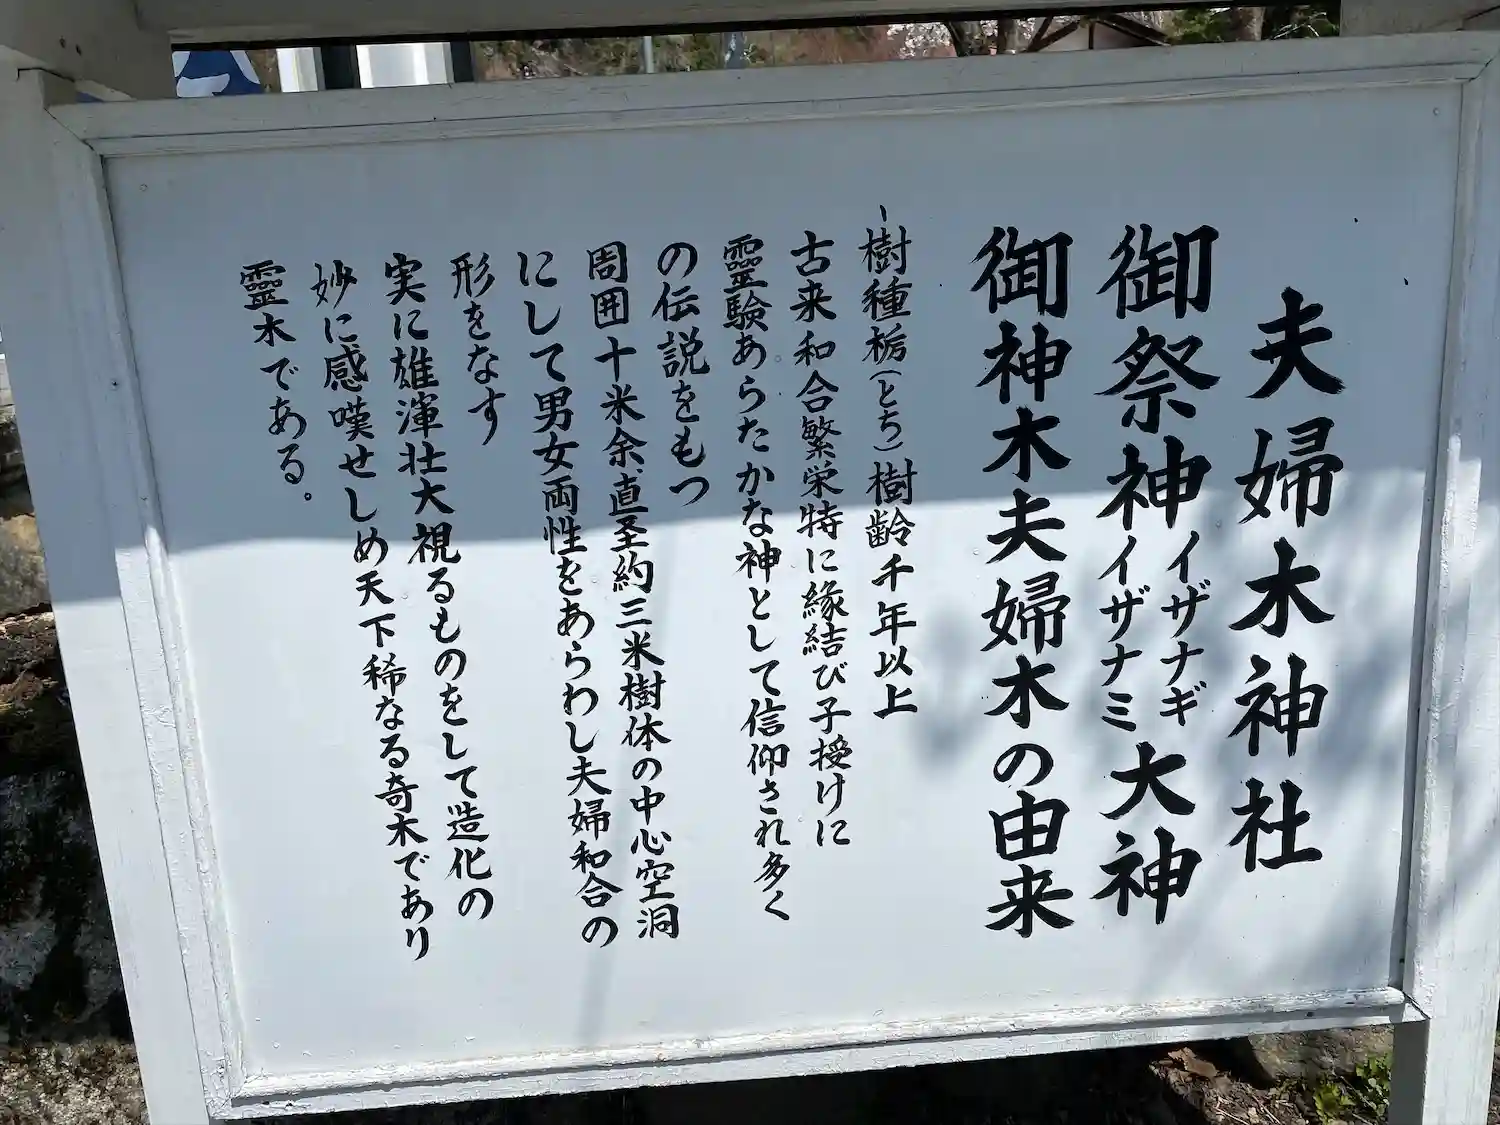 夫婦木神社
御祭神イザナギイザナミ大神
御神木夫婦木の由来
一樹種栃(とち)樹齢千年以上
古来和合繁栄特に縁結び子授けに
靈験あらたかな神として信仰され多く
の伝説をもつ
周囲十米余直圣約三米樹体の中心空洞
にして男女両性をあらわし夫婦和合の
形をなす
実に雄渾壮大視るものをして造化の
妙に感嘆せしめ天下稀なる奇木であり
靈木である。